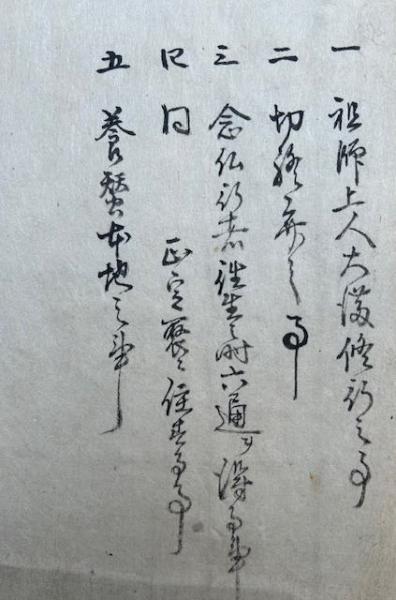 一 祖師上人大修行之事
二 切之事
三 念仏行者往生之時六通ヲ得る事
四 同 正定聚ニ住する事
五 養蚕本地之事